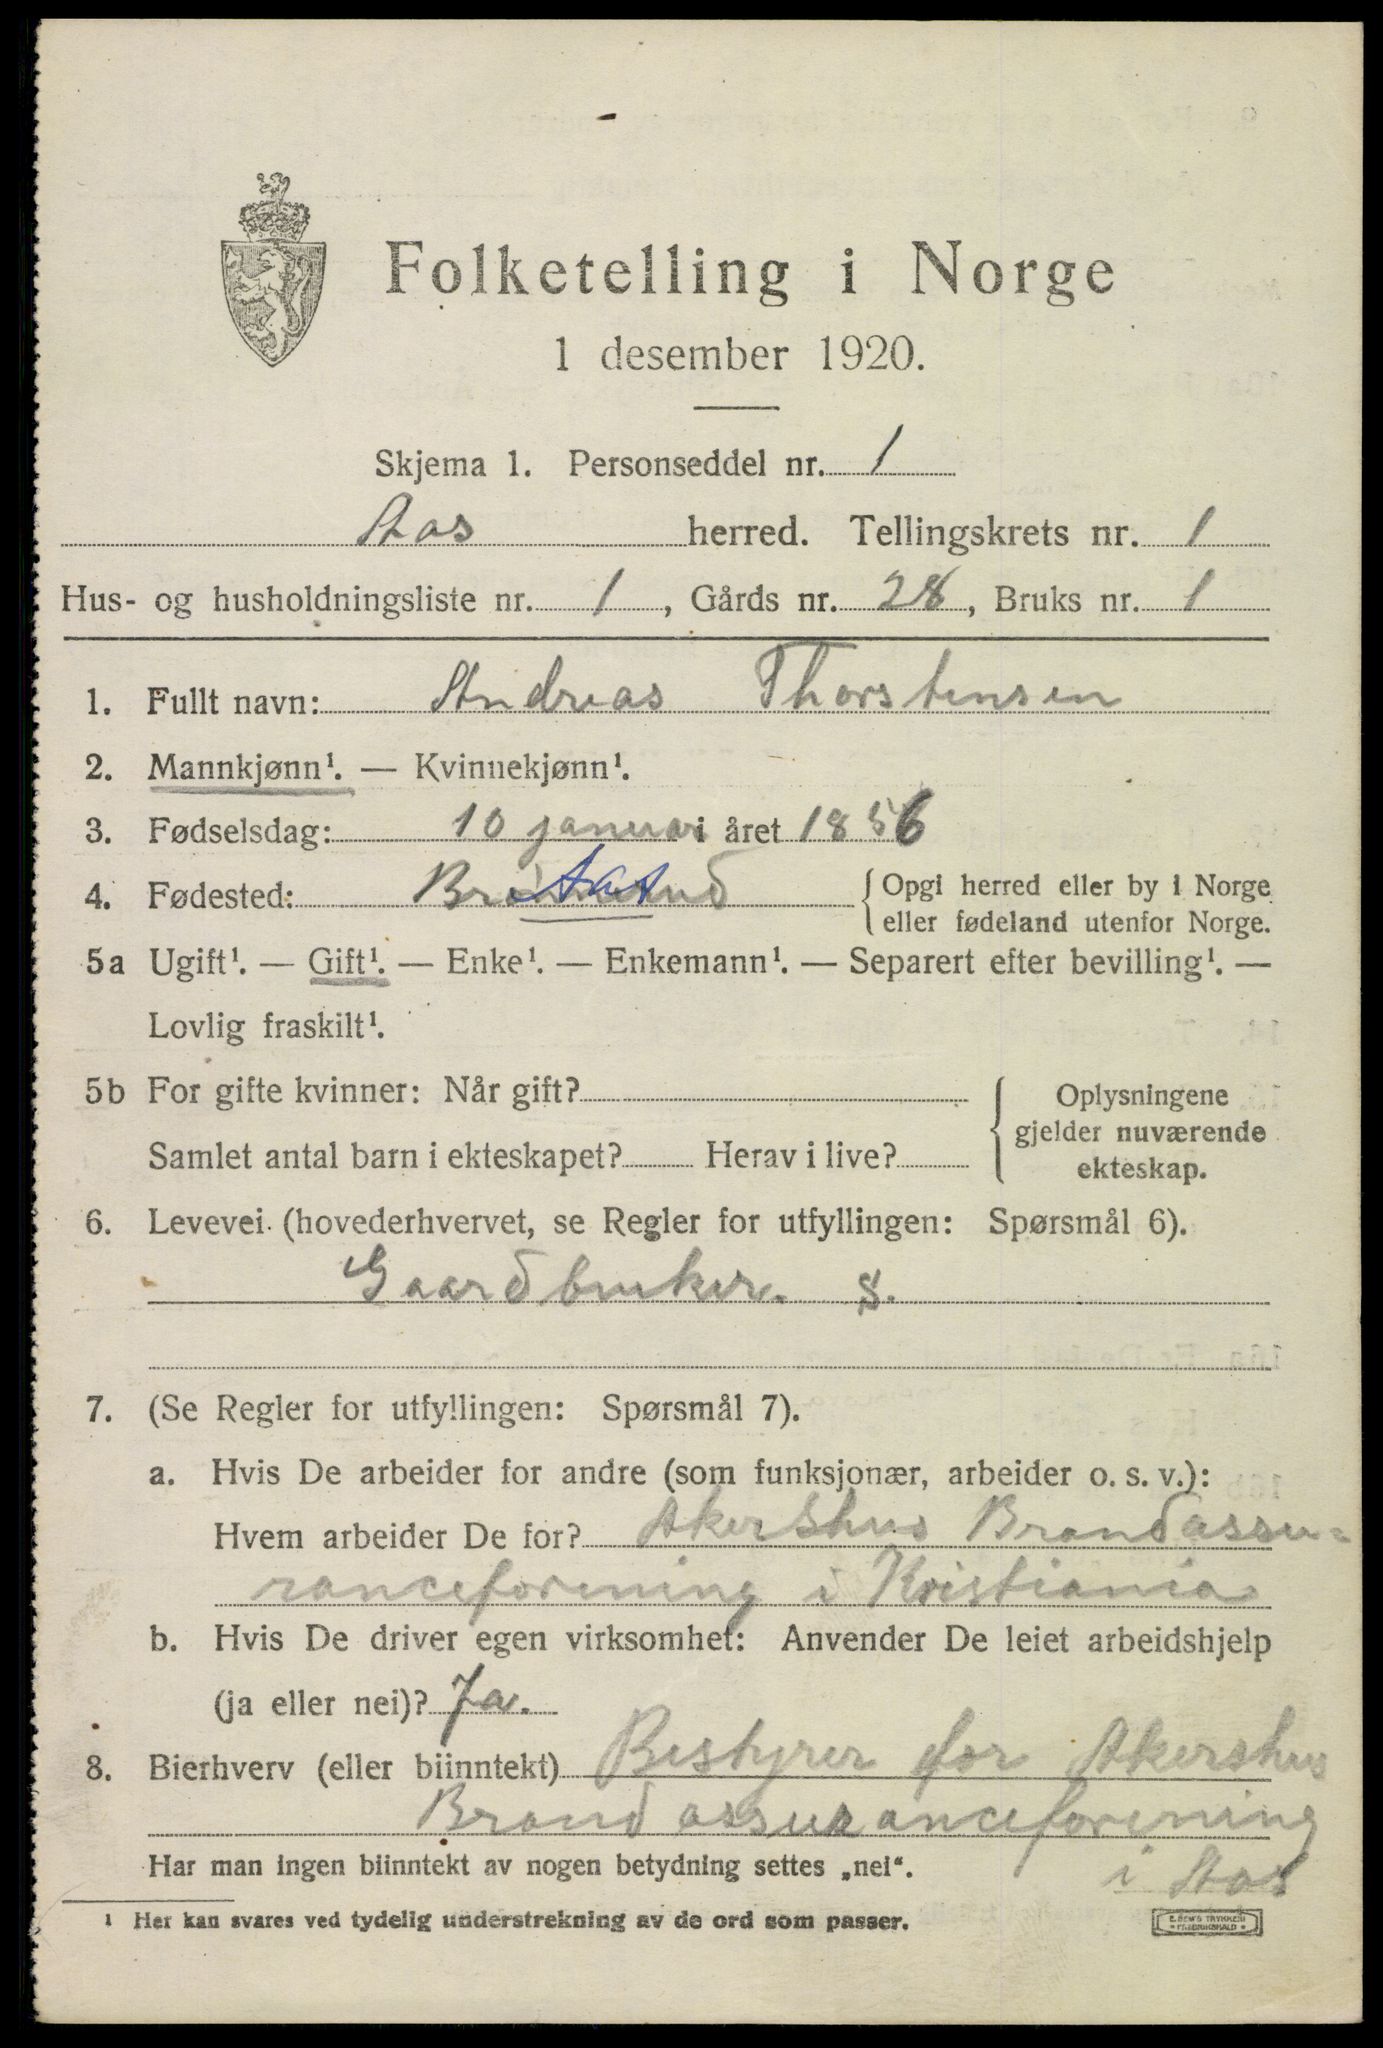 Folketelling i Norge
1 desember 1920.
Skjema 1. Personseddel nr. 1
Aas herred. Tellingskrets nr. 1
Hus- og husholdningsliste nr. 1, Gårds nr. 28, Bruks nr. 1
1. Fullt navn: Andreas Thorstensen
2. Mannkjønn¹. — Kvinnekjønn¹.
3. Fødselsdag: 10 januar i året 1856
4. Fødested: Aas { Opgi herred eller by i Norge
eller fødeland utenfor Norge.
5a Ugift¹. — Gift¹. — Enke¹. — Enkemann¹. — Separert efter bevilling¹. —
Lovlig fraskilt¹.
5b For gifte kvinner: Når gift?
Samlet antal barn i ekteskapet? Herav i live?
{ Oplysningene
gjelder nuværende
ekteskap.
6. Levevei (hovederhvervet, se Regler for utfyllingen: Spørsmål 6).
Gaardbruker. S.
7. (Se Regler for utfyllingen: Spørsmål 7).
a. Hvis De arbeider for andre (som funksjonær, arbeider o. s. v.):
Hvem arbeider De for? Akershus Brandassu-
ranceforening i Kristiania
b. Hvis De driver egen virksomhet: Anvender De leiet arbeidshjelp
(ja eller nei)? Ja.
8. Bierhverv (eller biinntekt) Bestyrer for Akershus
Brandassuranceforening
Har man ingen biinntekt av nogen betydning settes „nei“.
i Aas
¹ Her kan svares ved tydelig understrekning av de ord som passer.
E. SEM'S TRYKKERI
FREDRIKSHALD